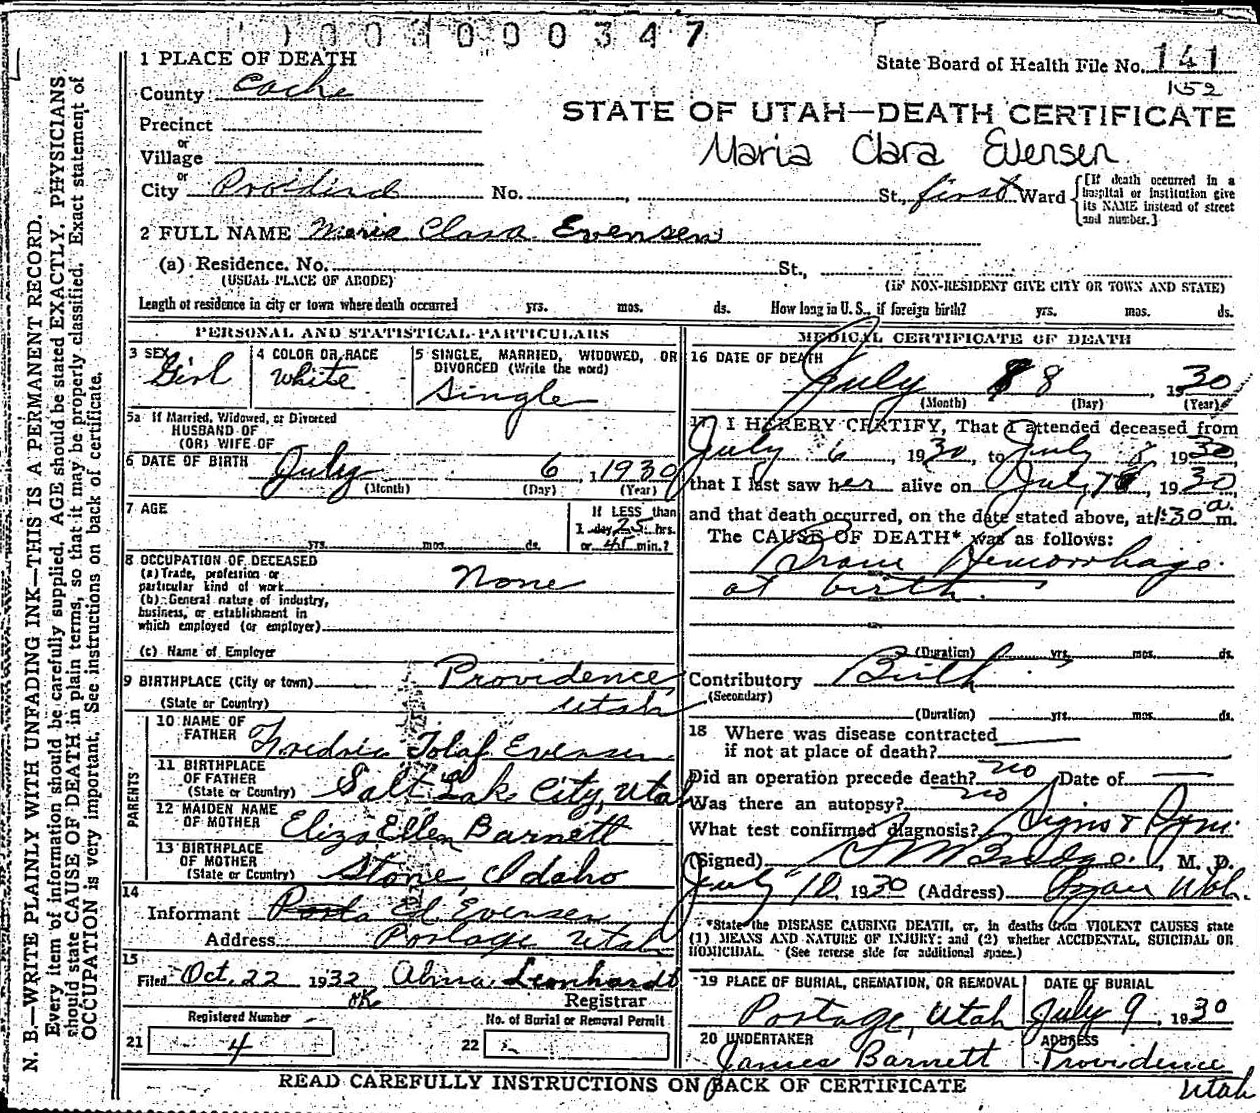 0 0 0 4 0 0 0 3 4 7
1 PLACE OF DEATH
State Board of Health File No. 141
County Cache
1252
STATE OF UTAH—DEATH CERTIFICATE
Precinct
or
Maria Clara Evensen
Village
or
City No. St., first Ward
[If death occurred in a hospital or institution give its NAME instead of street and number.]
2 FULL NAME Maria Clara Evensen
(a) Residence. No. St.,
(USUAL PLACE OF ABODE) (IF NON-RESIDENT GIVE CITY OR TOWN AND STATE)
Length of residence in city or town where death occurred yrs. mos. ds. How long in U.S., if foreign birth? yrs. mos. ds.
PERSONAL AND STATISTICAL PARTICULARS
3 SEX Girl
4 COLOR OR RACE White
5 SINGLE, MARRIED, WIDOWED, OR DIVORCED (Write the word)
Single
5a If Married, Widowed, or Divorced
HUSBAND OF
(OR) WIFE OF
6 DATE OF BIRTH July 6, 1930
(Month) (Day) (Year)
7 AGE yrs. mos. ds.
If LESS than
1 day 25 hrs.
or 41 min.?
8 OCCUPATION OF DECEASED
(a) Trade, profession or
particular kind of work None
(b) General nature of industry,
business, or establishment in
which employed (or employer)
(c) Name of Employer
9 BIRTHPLACE (City or town) Providence
(State or Country) Utah
PARENTS'
10 NAME OF
FATHER Evensen
11 BIRTHPLACE
OF FATHER
(State or Country) Salt Lake City, Utah
12 MAIDEN NAME
OF MOTHER Eliza Ellen Barnett
13 BIRTHPLACE
OF MOTHER
(State or Country) Stone, Idaho
14
Informant Ed Evensen
Address Portage Utah
15
Filed Oct. 22 1932 Alma Leonhardt
OK Registrar
Registered Number No. of Burial or Removal Permit
21 4 22
MEDICAL CERTIFICATE OF DEATH
16 DATE OF DEATH
July 8, 1930
(Month) (Day) (Year)
17 I HEREBY CERTIFY, That I attended deceased from
July 6, 1930, to July 8 1930
that I last saw her alive on July 7, 1930
and that death occurred, on the date stated above, at 1:30 a. m.
The CAUSE OF DEATH* was as follows:
Brain Hemorrhage
at birth.
(Duration) yrs. mos. ds.
Contributory Birth
(Secondary)
(Duration) yrs. mos. ds.
18 Where was disease contracted
if not at place of death?
Did an operation precede death? no Date of
Was there an autopsy? no
What test confirmed diagnosis? Signs &
(Signed) M. D.
July 10 1930 (Address)
*State the DISEASE CAUSING DEATH, or, in deaths from VIOLENT CAUSES state
(1) MEANS AND NATURE OF INJURY; and (2) whether ACCIDENTAL, SUICIDAL OR
HOMICIDAL. (See reverse side for additional space.)
19 PLACE OF BURIAL, CREMATION, OR REMOVAL DATE OF BURIAL
Portage, Utah July 9, 1930
20 UNDERTAKER ADDRESS
James Barnett Providence
Utah
READ CAREFULLY INSTRUCTIONS ON BACK OF CERTIFICATE
N. B.—WRITE PLAINLY WITH UNFADING INK—THIS IS A PERMANENT RECORD.
Every item of information should be carefully supplied. AGE should be stated EXACTLY. PHYSICIANS
should state CAUSE OF DEATH in plain terms, so that it may be properly classified. Exact statement of
OCCUPATION is very important. See instructions on back of certificate.